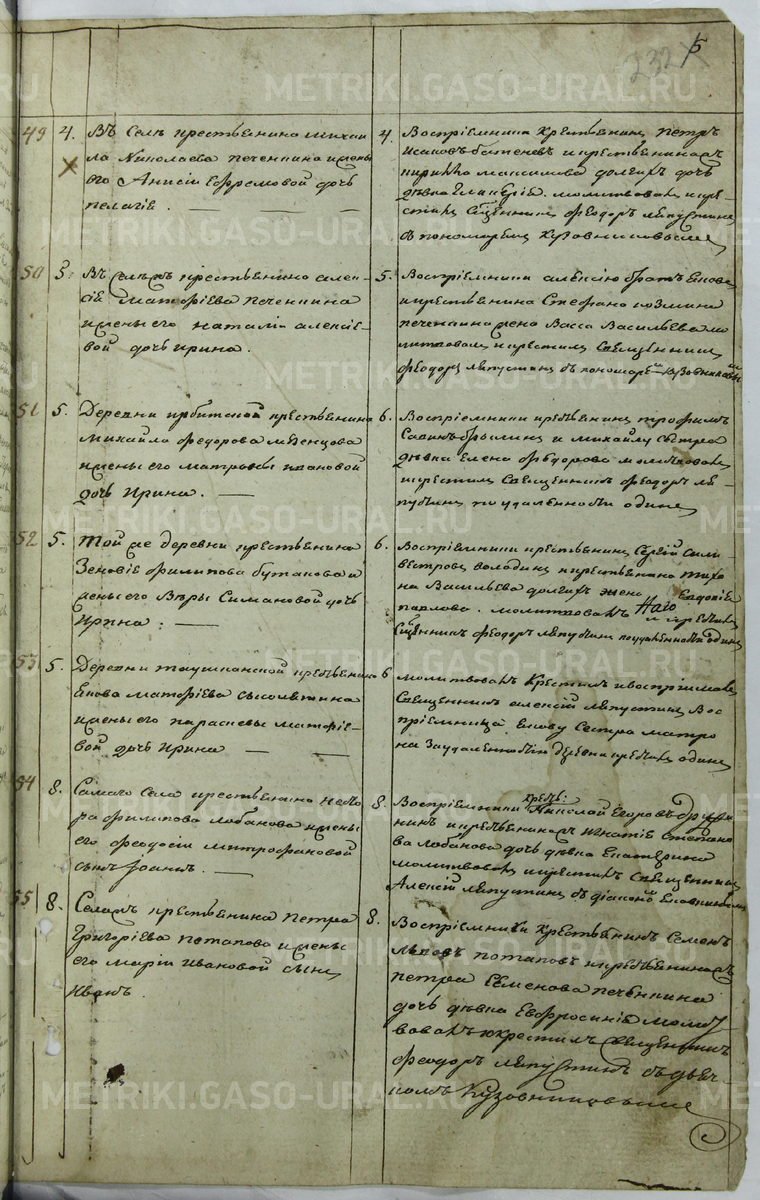 232
5
49 4. Въ Селѣ крестьянина Михаи
ла Николаева Печенкина и жены
его Анисіи Ефремовой дочь
Пелагіе.
4. Воспріемники Крестьянинъ Петръ
Исаковъ и крестьянина
Максимова Долгихъ дочь
дѣвка молитвовалъ и кре
стилъ Священникъ Феодоръ Ляпустинъ
съ пономаремъ Кузовниковымъ
50 5. Въ крестьянина Алек-
сіе Матфіева Печенкина
и жены его Наталіи Алексіе-
вой дочь Ирина.
5. Воспріемники Алексію братъ
и крестьянина Стефана Козмина
Печенкина жена Васса Васильева мо
литвовалъ и крестилъ Священникъ
Феодоръ Ляпустинъ съ пономаремъ Кузовниковымъ
51 5. Деревни Ирбитской крестьянина
Михайла Федорова Мезенцова
и жены его Матроны Ивановой
дочь Ирина.
6. Воспріемники крестьянинъ Трофимъ
Савинъ и Михайлу сестра
дѣвка Елена Федорова молитвовалъ
и крестилъ Священникъ Феодоръ Ля-
пустинъ по удаленности одинъ
52 5. Той же деревни крестьянина
Зеновіе Филипова Бутакова и
жены его Вѣры Симановой дочь
Ирина.
6. Воспріемники крестьянинъ Сергій Сили-
вестровъ Володинъ и крестьянина Тихо
на Васильева Долгихъ жена Евдокіе
Павлова. молитвовалъ и крестилъ
Священникъ Феодоръ Ляпустинъ по удаленности одинъ
53 5. Деревни Таушканской крестьянина
Екова Матфіева Сысолятина
и жены его Парасковы Матфіе-
вой дочь Ирина
6 молитвовалъ крестилъ и воспріималъ
Священникъ Алексій Ляпустинъ Вос
пріемница Екову Сестра Матро
на За удаленностію деревни крестилъ одинъ
54 8. Самаго Села крестьянина
Филипова Лобанова и жены
его Феодосіи Митрофановой
сынъ Іоаннъ.
8. Воспріемники крест: Николай Егоровъ
и крестьянина Игнатіе Степано
ва Лобанова дочь дѣвка Екатерина
молитвовалъ и крестилъ Священникъ
Алексій Ляпустинъ съ діакономъ
55 8. Села крестьянина Петра
Григоріева Потапова и жены
его Маріи Ивановой сынъ
Иванъ.
8. Воспріемники Крестьянинъ Семенъ
Львовъ Потаповъ и крестьянина
Петра Семенова Печенкина
дочь дѣвка Евфросинія молит
вовалъ и крестилъ Священникъ
Феодоръ Ляпустинъ съ дьяч
комъ Кузовниковымъ
METRIKI.GASO-URAL.RU